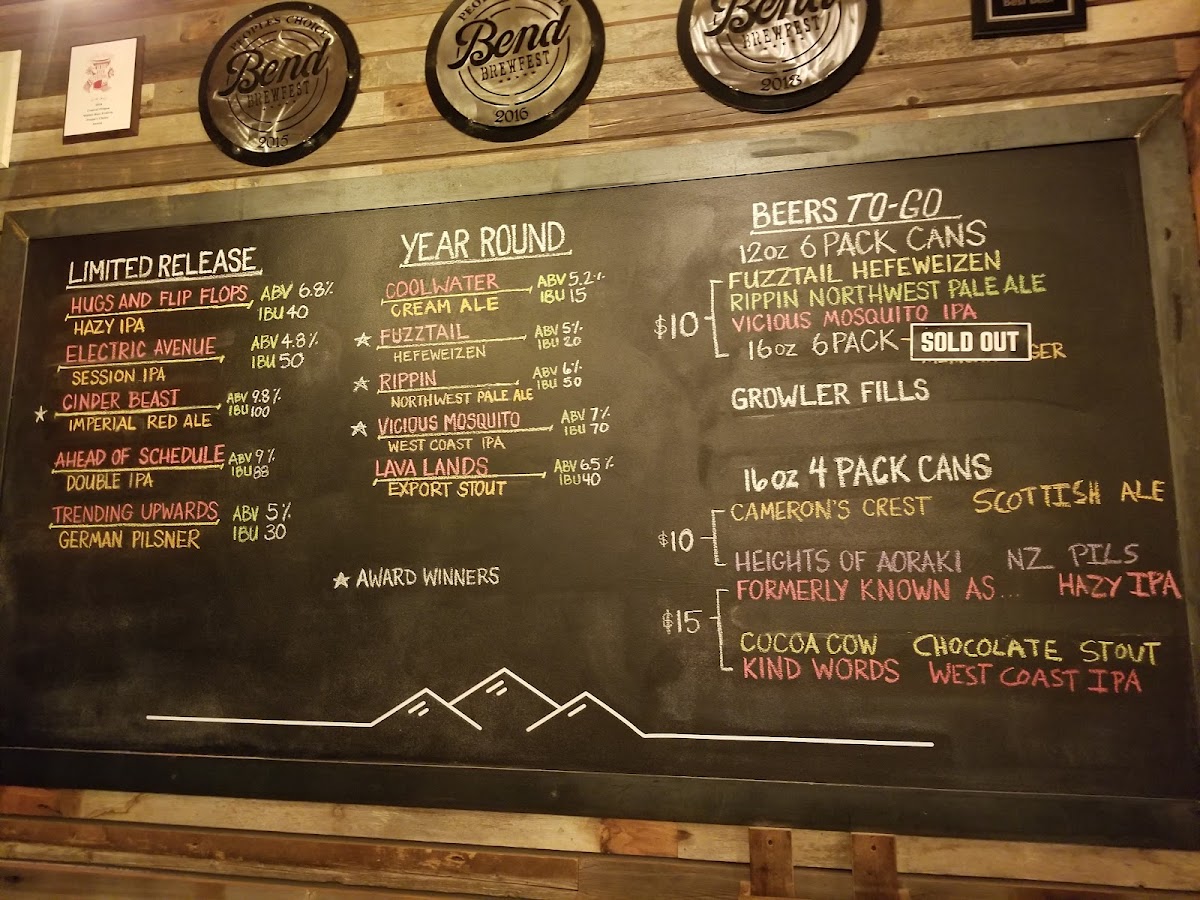 PEOPLES CHOICE
Bend
BREWFEST
2015
Bend
BREWFEST
2016
Bend
BREWFEST
2018
LIMITED RELEASE
HUGS AND FLIP FLOPS ABV 6.8%
HAZY IPA IBU 40
ELECTRIC AVENUE ABV 4.8%
SESSION IPA IBU 50
CINDER BEAST ABV 9.8%
IMPERIAL RED ALE IBU 100
AHEAD OF SCHEDULE ABV 9%
DOUBLE IPA IBU 88
TRENDING UPWARDS ABV 5%
GERMAN PILSNER IBU 30
YEAR ROUND
COOLWATER ABV 5.2%
CREAM ALE IBU 15
FUZZTAIL ABV 5%
HEFEWEIZEN IBU 20
RIPPIN ABV 6%
NORTHWEST PALE ALE IBU 50
VICIOUS MOSQUITO ABV 7%
WEST COAST IPA IBU 70
LAVA LANDS ABV 6.5%
EXPORT STOUT IBU 40
AWARD WINNERS
BEERS TO-GO
12oz 6 PACK CANS
FUZZTAIL HEFEWEIZEN
RIPPIN NORTHWEST PALE ALE
$10 VICIOUS MOSQUITO IPA
16oz 6 PACK- SOLD OUT
GROWLER FILLS
16oz 4 PACK CANS
CAMERON'S CREST SCOTTISH ALE
$10
HEIGHTS OF AORAKI NZ PILS
FORMERLY KNOWN AS... HAZY IPA
$15
COCOA COW CHOCOLATE STOUT
KIND WORDS WEST COAST IPA